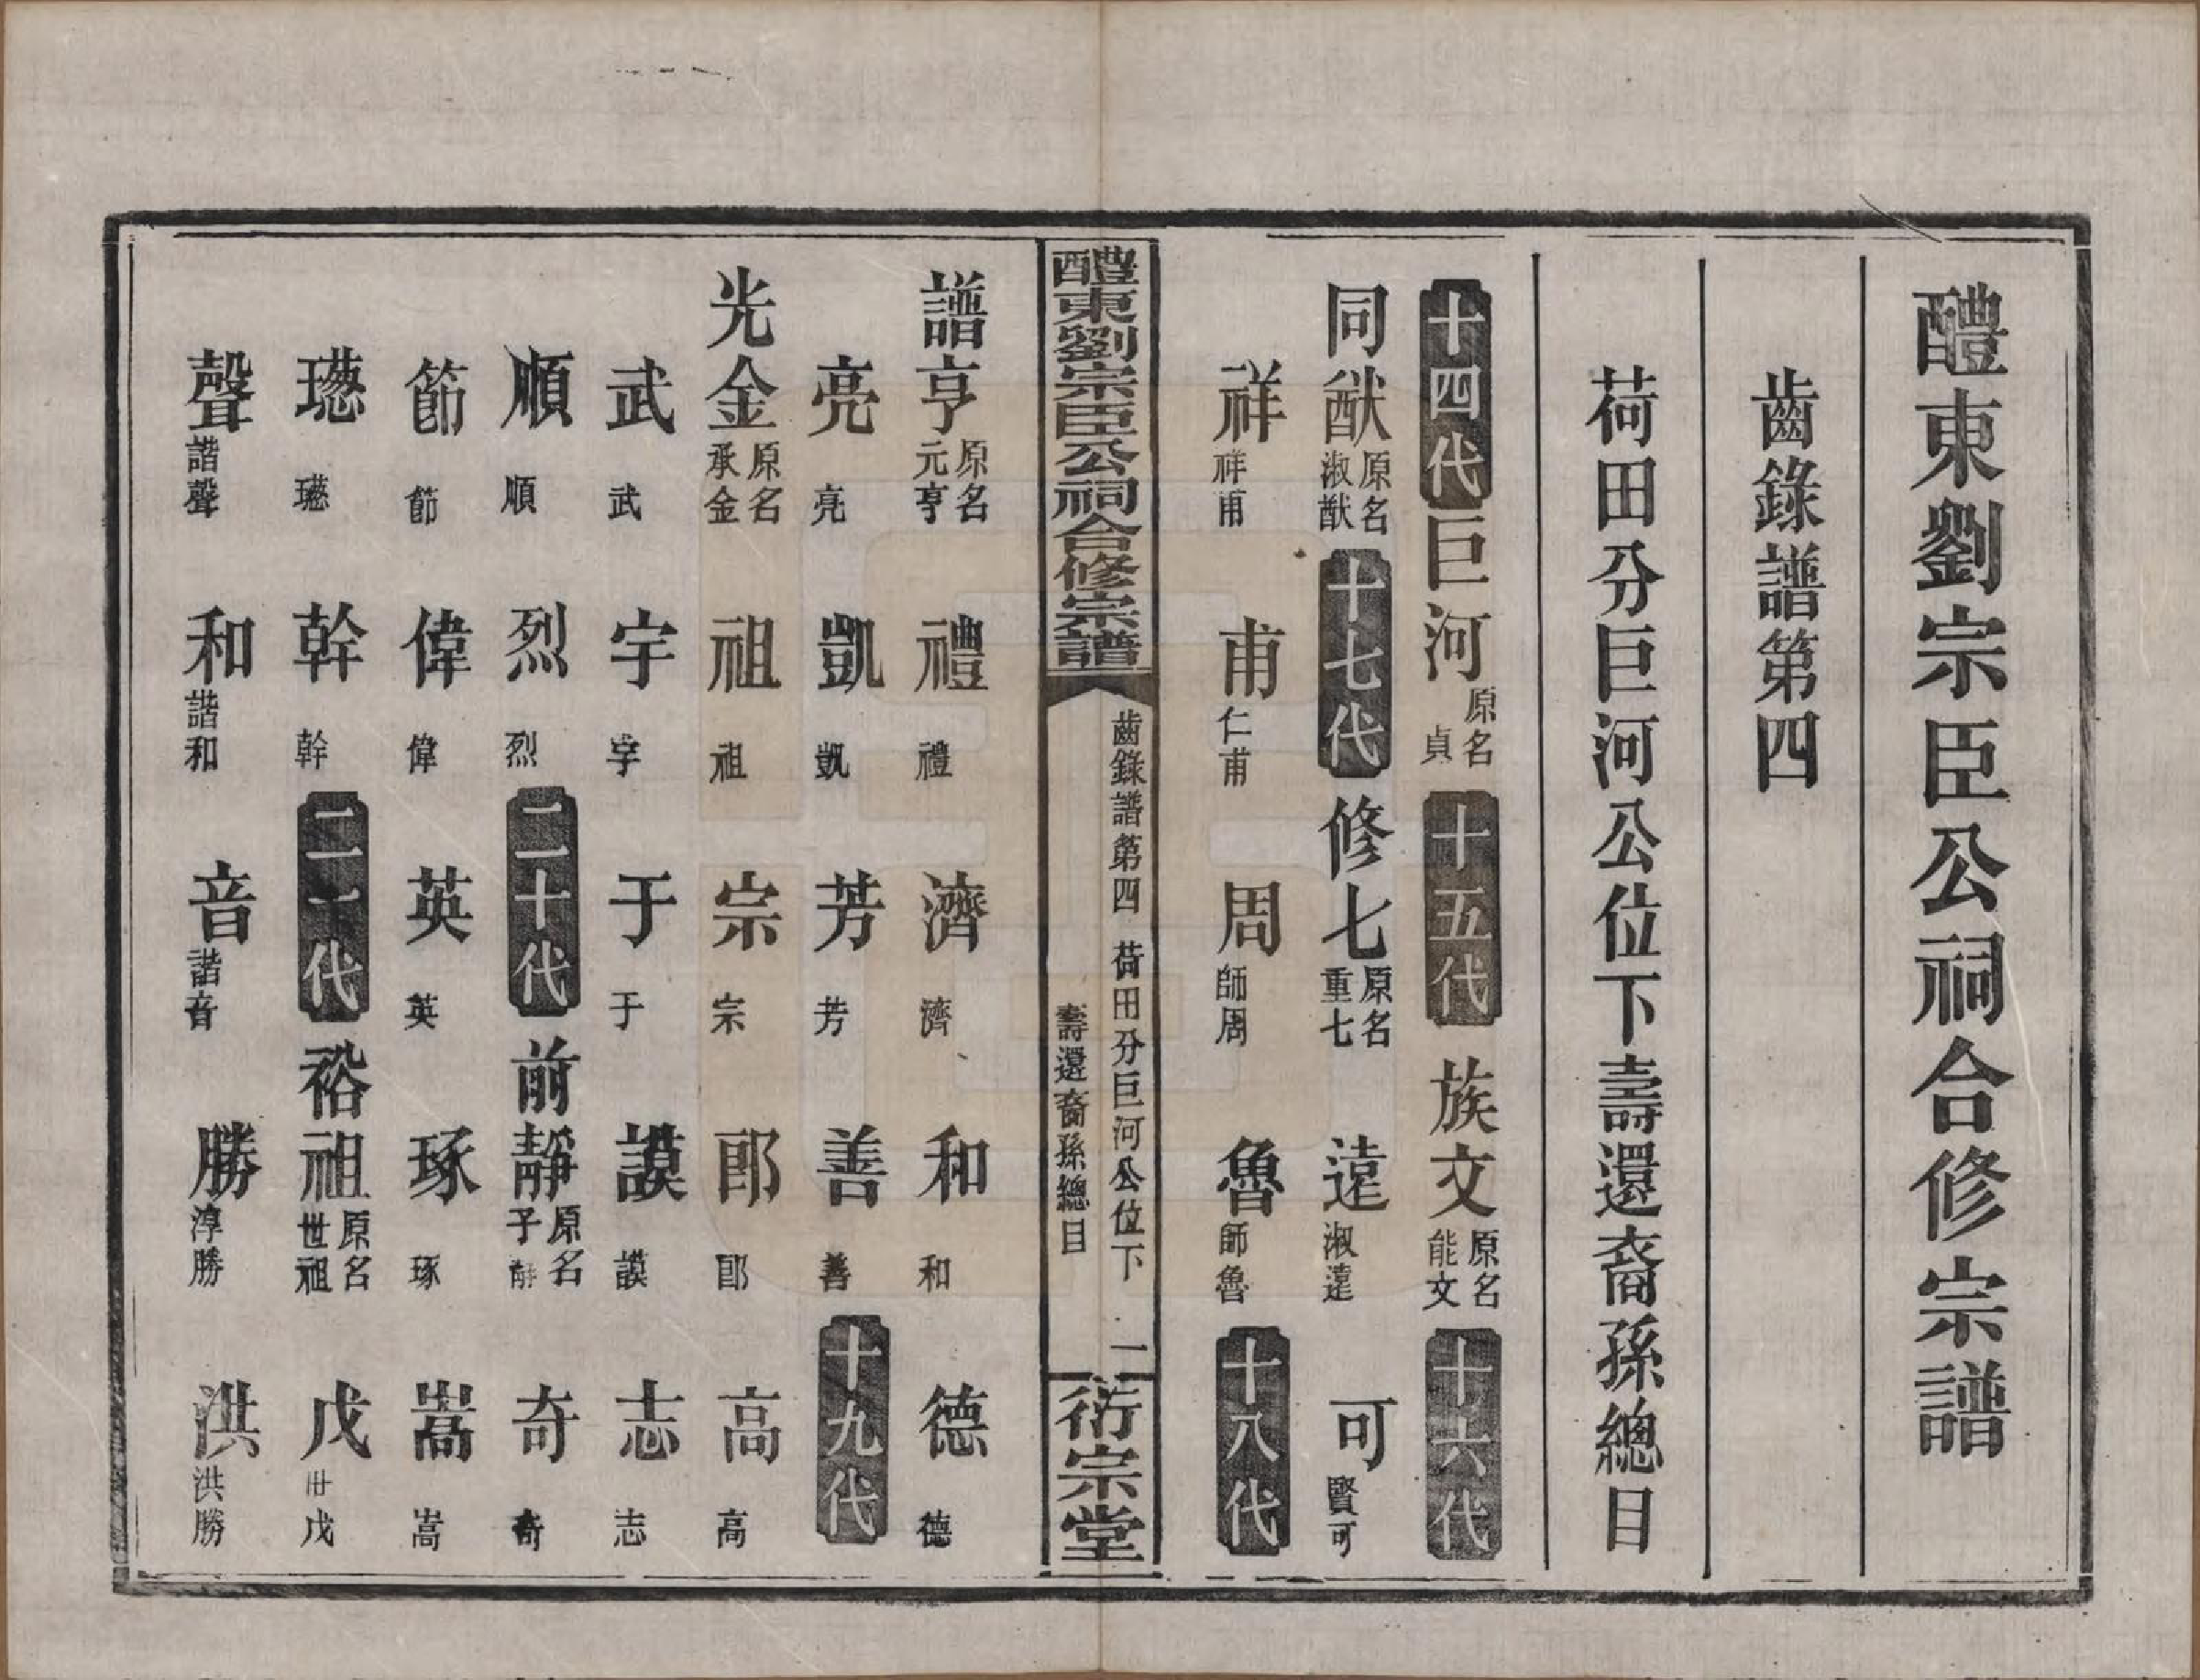 醴東劉宗臣公祠合修宗譜
齒錄譜第四
荷田分巨河公位下壽還裔孫總目
十四代 巨河 原名貞 十五代 族文 原名能文 十六代
同猷 原名淑猷 十七代 修七 原名重七 遠 淑遠 可 賢可
祥 祥甫 甫 仁甫 周 師周 魯 師魯 十八代
醴東劉宗臣公祠合修宗譜
齒錄譜第四 荷田分巨河公位下
壽還裔孫總目
一
衍宗堂
譜亨 原名元亨 禮 禮 濟 濟 和 和 德 德
亮 亮 凱 凱 芳 芳 善 善 十九代
光金 原名承金 祖 祖 宗 宗 郎 郎 高 高
武 武 宇 宇 于 于 謨 謨 志 志
順 順 烈 烈 二十代 前靜 原名子靜 奇 奇
節 節 偉 偉 英 英 琢 琢 嵩 嵩
璁 璁 幹 幹 二一代 裕祖 原名世祖 戊 世戊
聲 諧聲 和 諧和 音 諧音 勝 淳勝 洪 洪勝